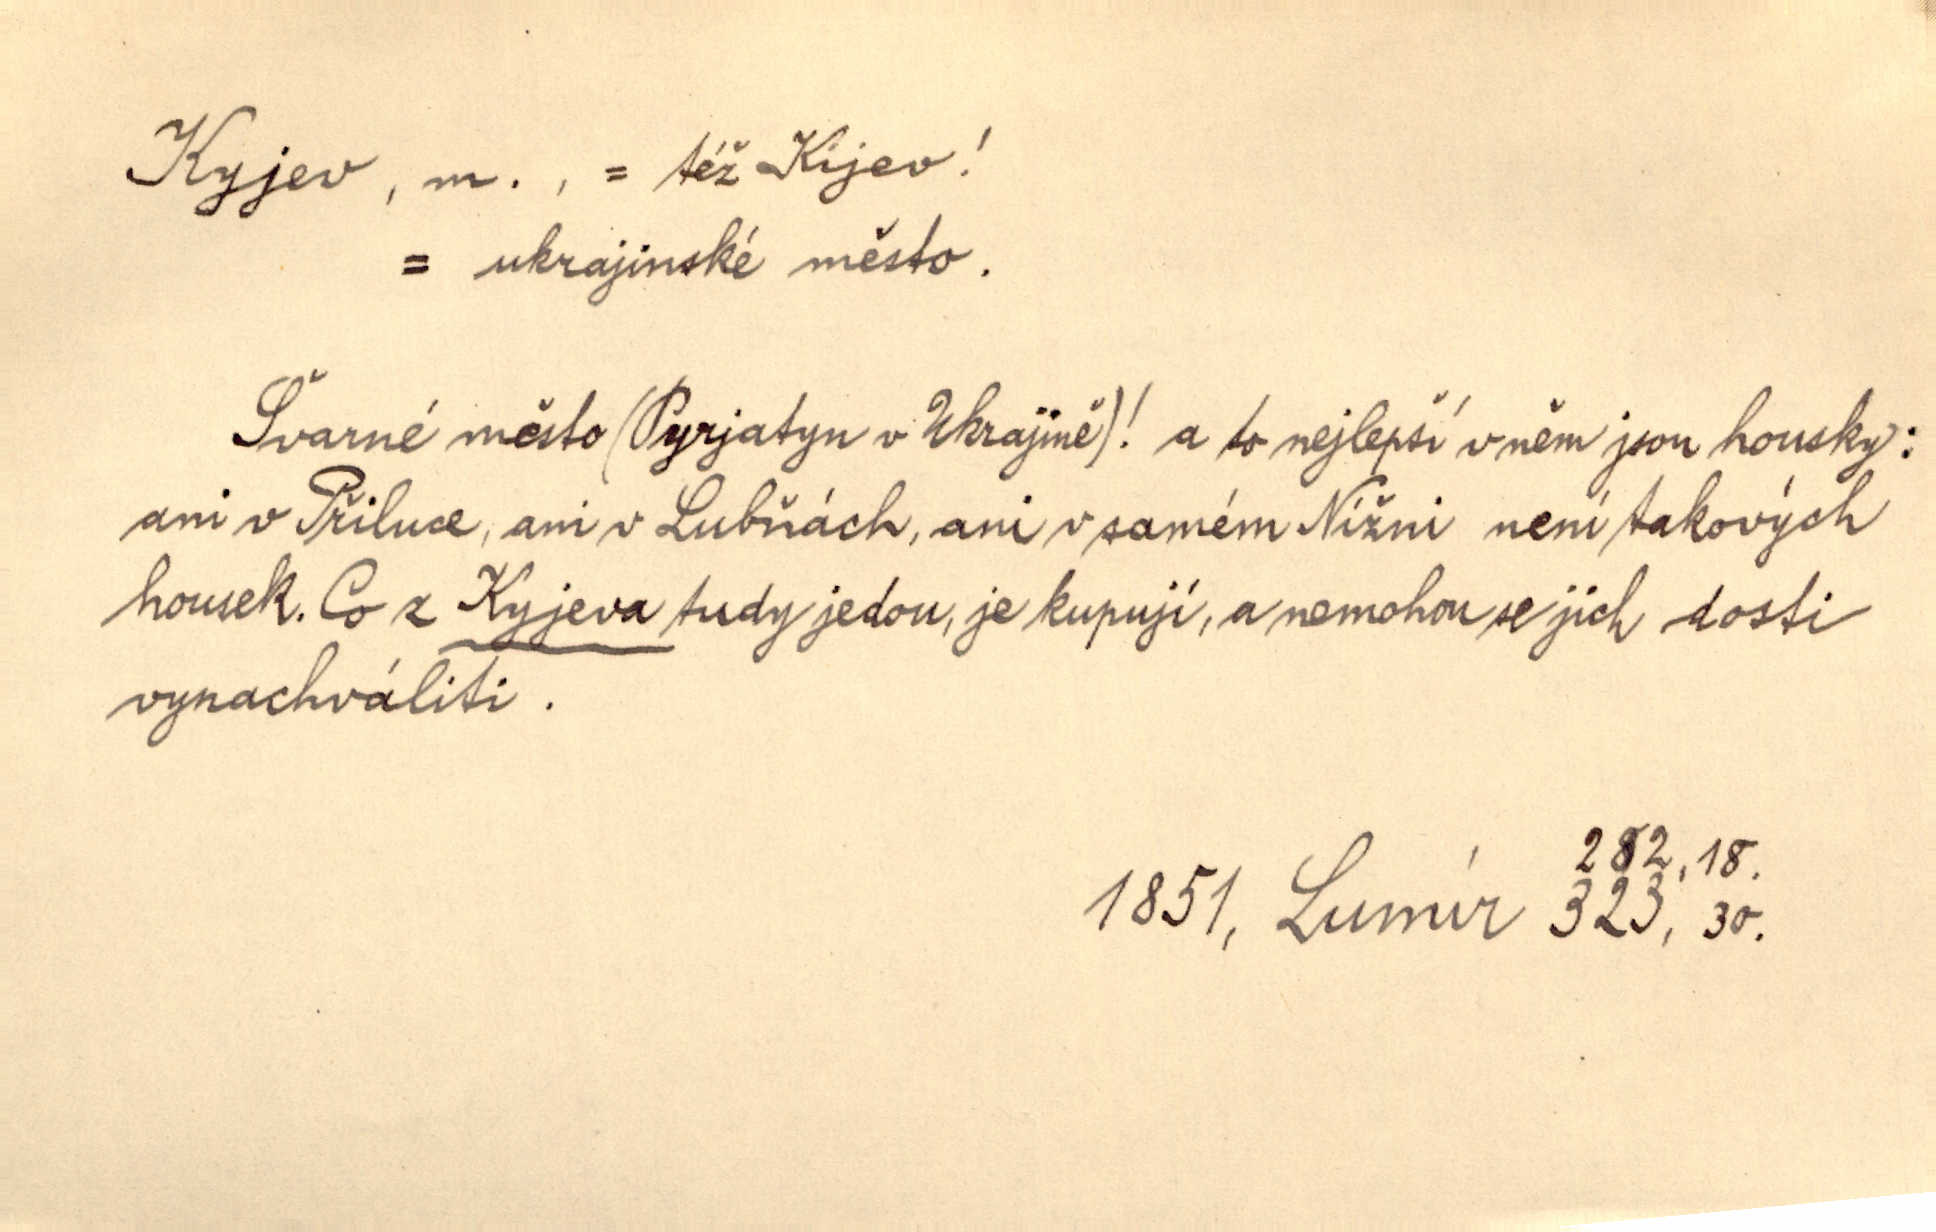 Kyjev, m., = též Kijev!
= ukrajinské město.
Švarné město (Pyrjatyn v Ukrajině)! a to nejlepší v něm jsou housky:
ani v Příluce, ani v Lubňách, ani v samém Nížni není takových
housek. Co z Kyjeva tudy jedou, je kupují, a nemohou se jich dosti
vynachváliti.
282, 18.
1851, Lumír 323, 30.